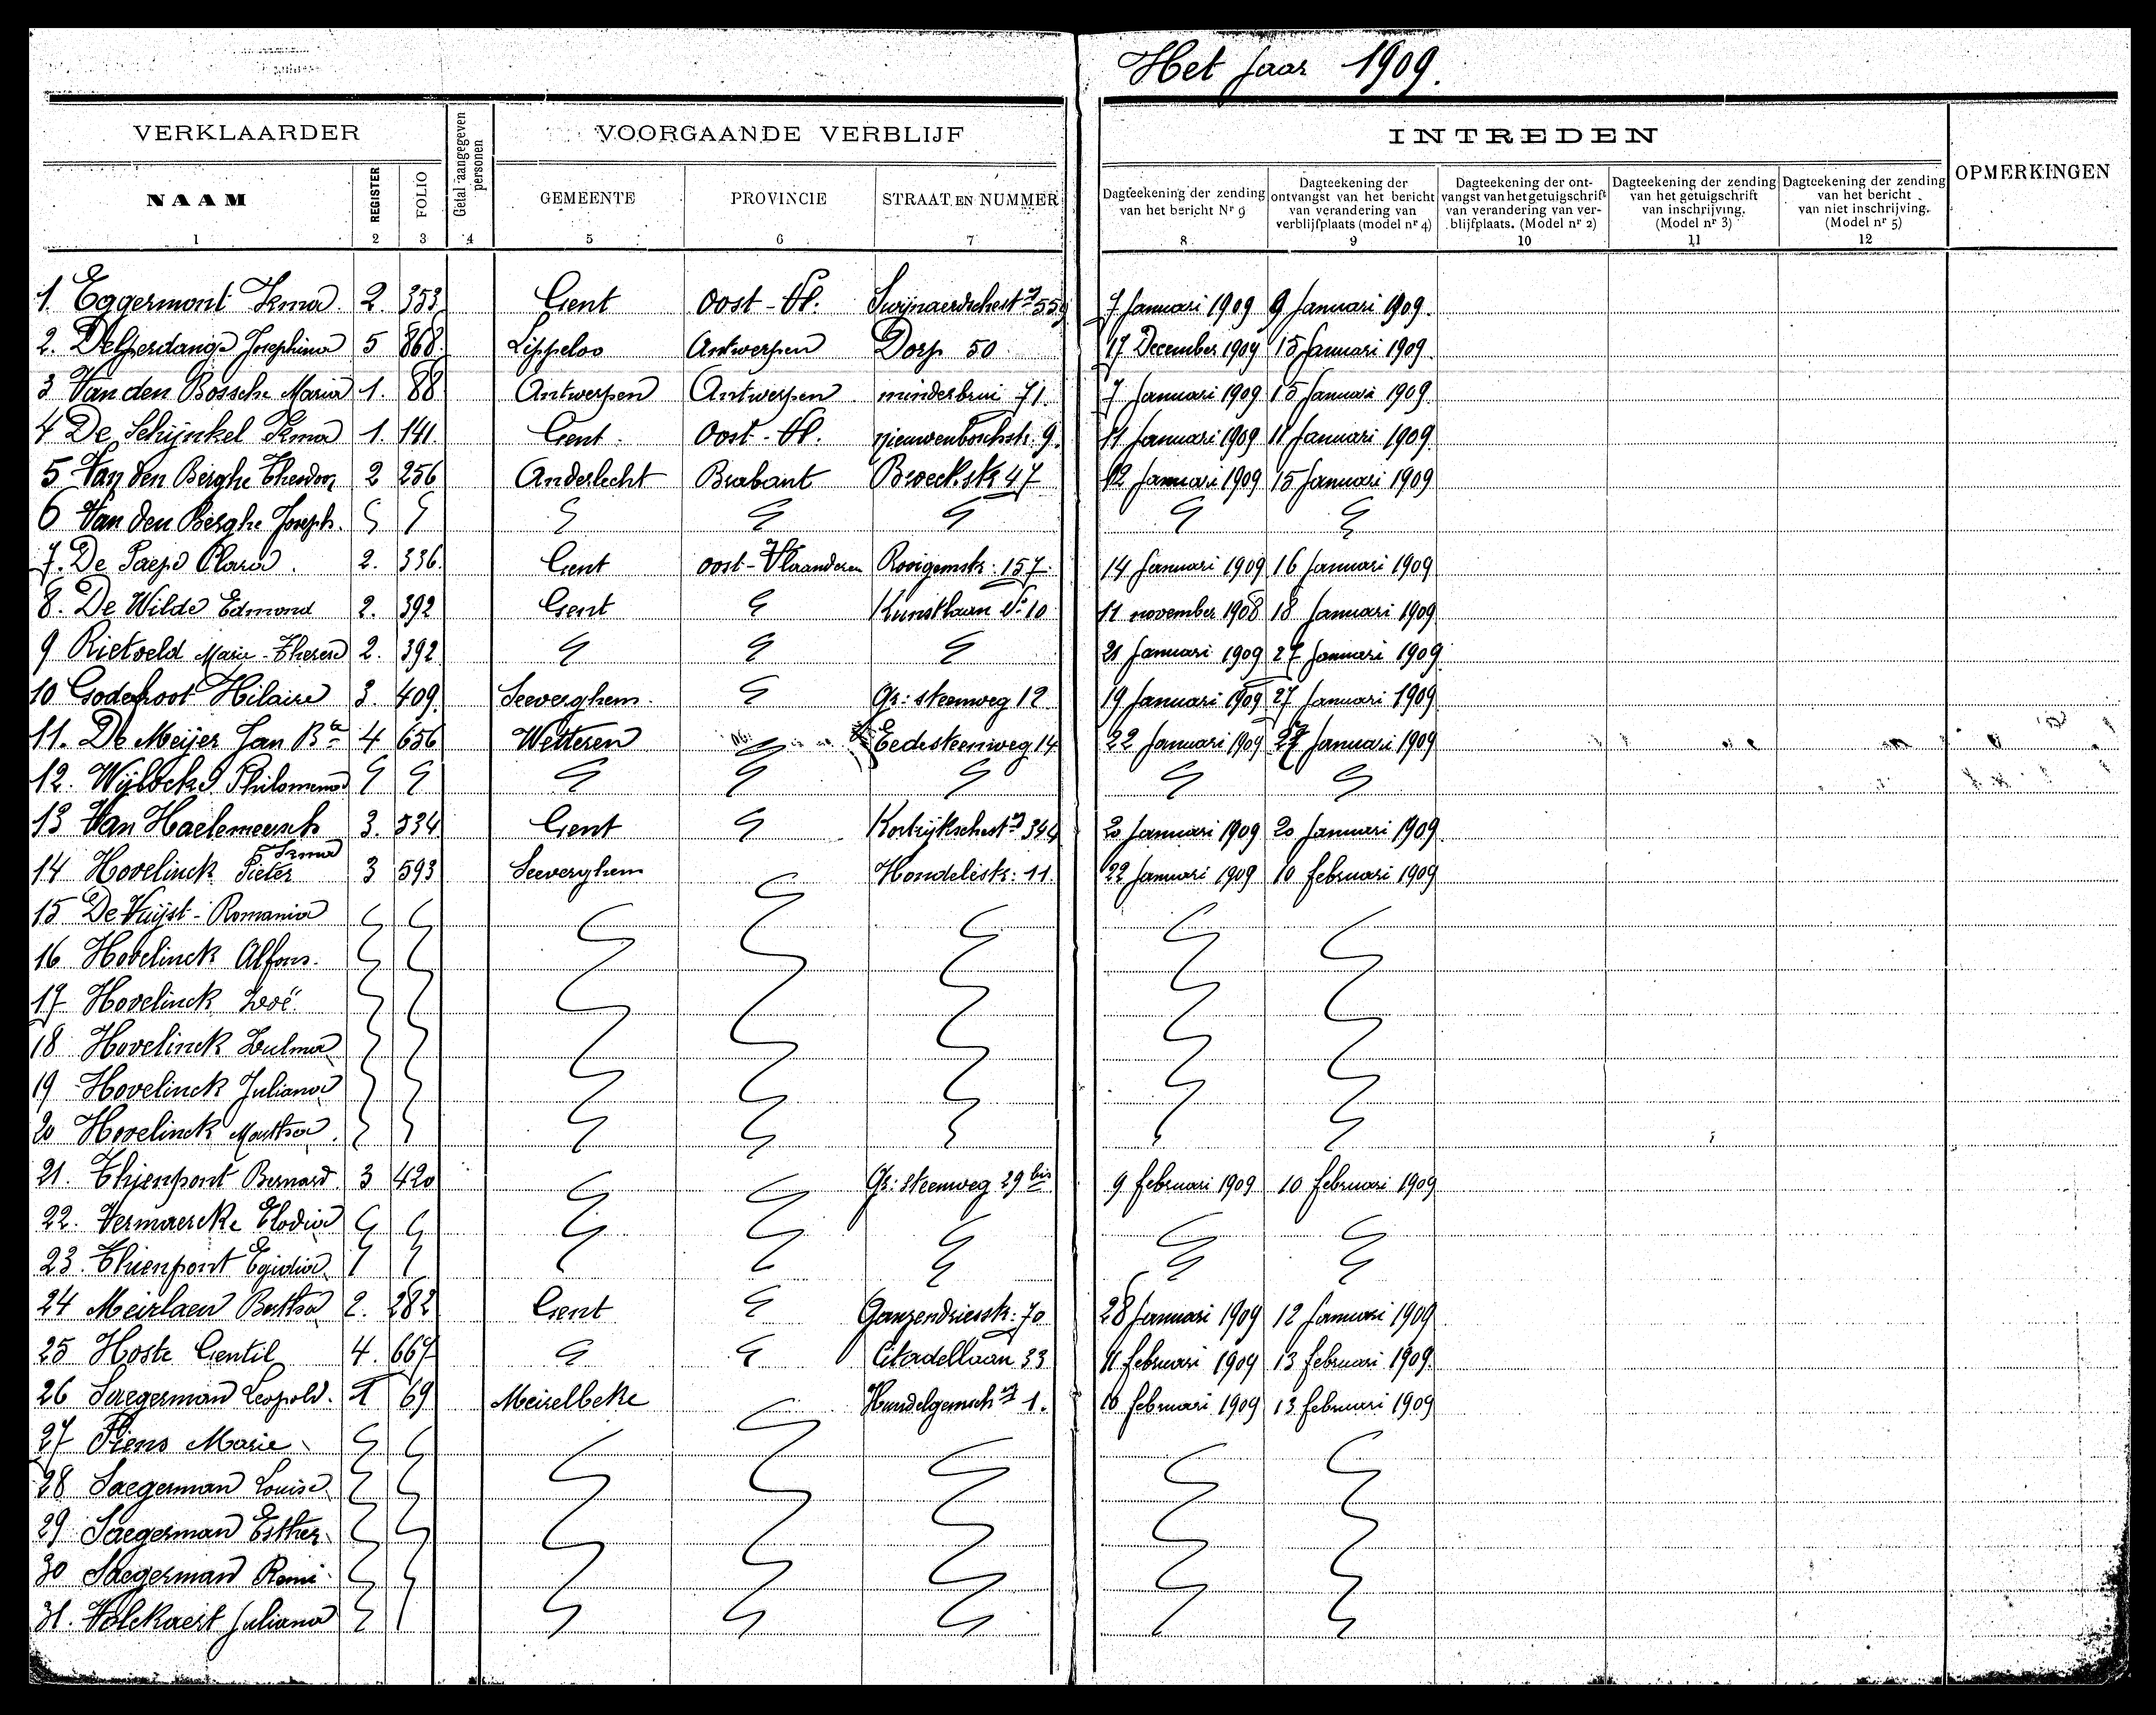 Het jaar 1909.
VERKLAARDER
Getal aangegeven personen
VOORGAANDE VERBLIJF
INTREDEN
OPMERKINGEN
NAAM REGISTER FOLIO GEMEENTE PROVINCIE STRAAT EN NUMMER
Dagteekening der zending van het bericht Nr 9
Dagteekening der ontvangst van het bericht van verandering van verblijfplaats (model nr 4)
Dagteekening der ontvangst van het getuigschrift van verandering van verblijfplaats. (Model nr 2)
Dagteekening der zending van het getuigschrift van inschrijving. (Model nr 3)
Dagteekening der zending van het bericht van niet inschrijving. (Model nr 5)
1 2 3 4 5 6 7 8 9 10 11 12
1. Eggermont Irma. 2. 353 Gent Oost-Vl. 7 Januari 1909 9 Januari 1909.
2. Delperdange Josephina 5 868. Lippeloo Antwerpen Dorp 50. 17 December 1909 15 Januari 1909.
3 Van den Bossche Maria 1. 88 Antwerpen Antwerpen minderbrui 71. 7 Januari 1909 15 Januari 1909.
4 De Schijnkel Irma 1. 141. Gent. Oost-Vl. nieuwenboschstr. 9. 11 Januari 1909 11 Januari 1909.
5 Van den Berghe Theodoor 2 256 Anderlecht Brabant Broeckstr 47 12 Januari 1909 15 Januari 1909
6 Van den Berghe Joseph.
7. De Paepe Clara. 2. 336. Gent oost-Vlaanderen Rooigemstr: 157. 14 Januari 1909 16 Januari 1909
8. De Wilde Edmond 2. 392 Gent Kunstlaan No 10 11 november 1908 18 Januari 1909
9 Rietveld Marie-Theres 2. 392 21 Januari 1909 27 Januari 1909
10 Godefroot Hilaire 3. 409. Seeverghem. Gr: steenweg 12 19 Januari 1909 27 Januari 1909
11. De Meijer Jan Bte 4 656 Wetteren Eedesteenweg 14 22 Januari 1909 27 Januari 1909
12. Philomena
13 Van Haelemeersch Irma 3. 534 Gent Kortrijkschestw 344 20 Januari 1909 20 Januari 1909
14 Hovelinck Pieter 3 593 Seeverghem Hondelestr: 11. 22 Januari 1909 10 februari 1909
15 De Vuijst-Romania
16 Hovelinck Alfons.
17 Hovelinck Zoë.
18 Hovelinck Zulma
19 Hovelinck Juliana
20 Hovelinck Martha.
21. Thienpont Bernard. 3 420 Gr: steenweg 29 bis 9 februari 1909 10 februari 1909
22. Vermaercke Elodia
23. Thienpont Egidia.
24 Meirlaen Bertha 2. 282 Gent Ganzendriesstr: 70 28 Januari 1909 12 Januari 1909
25 Hoste Gentil 4. 667 Citadellaan 33 11 februari 1909 13 februari 1909.
26 Saegerman Leopold. 1 69 Meirelbeke 1. 10 februari 1909 13 februari 1909
27 Piens Marie
28 Saegerman Louise.
29 Saegerman Esther.
30 Saegerman Remi.
31. Volckaert Juliana